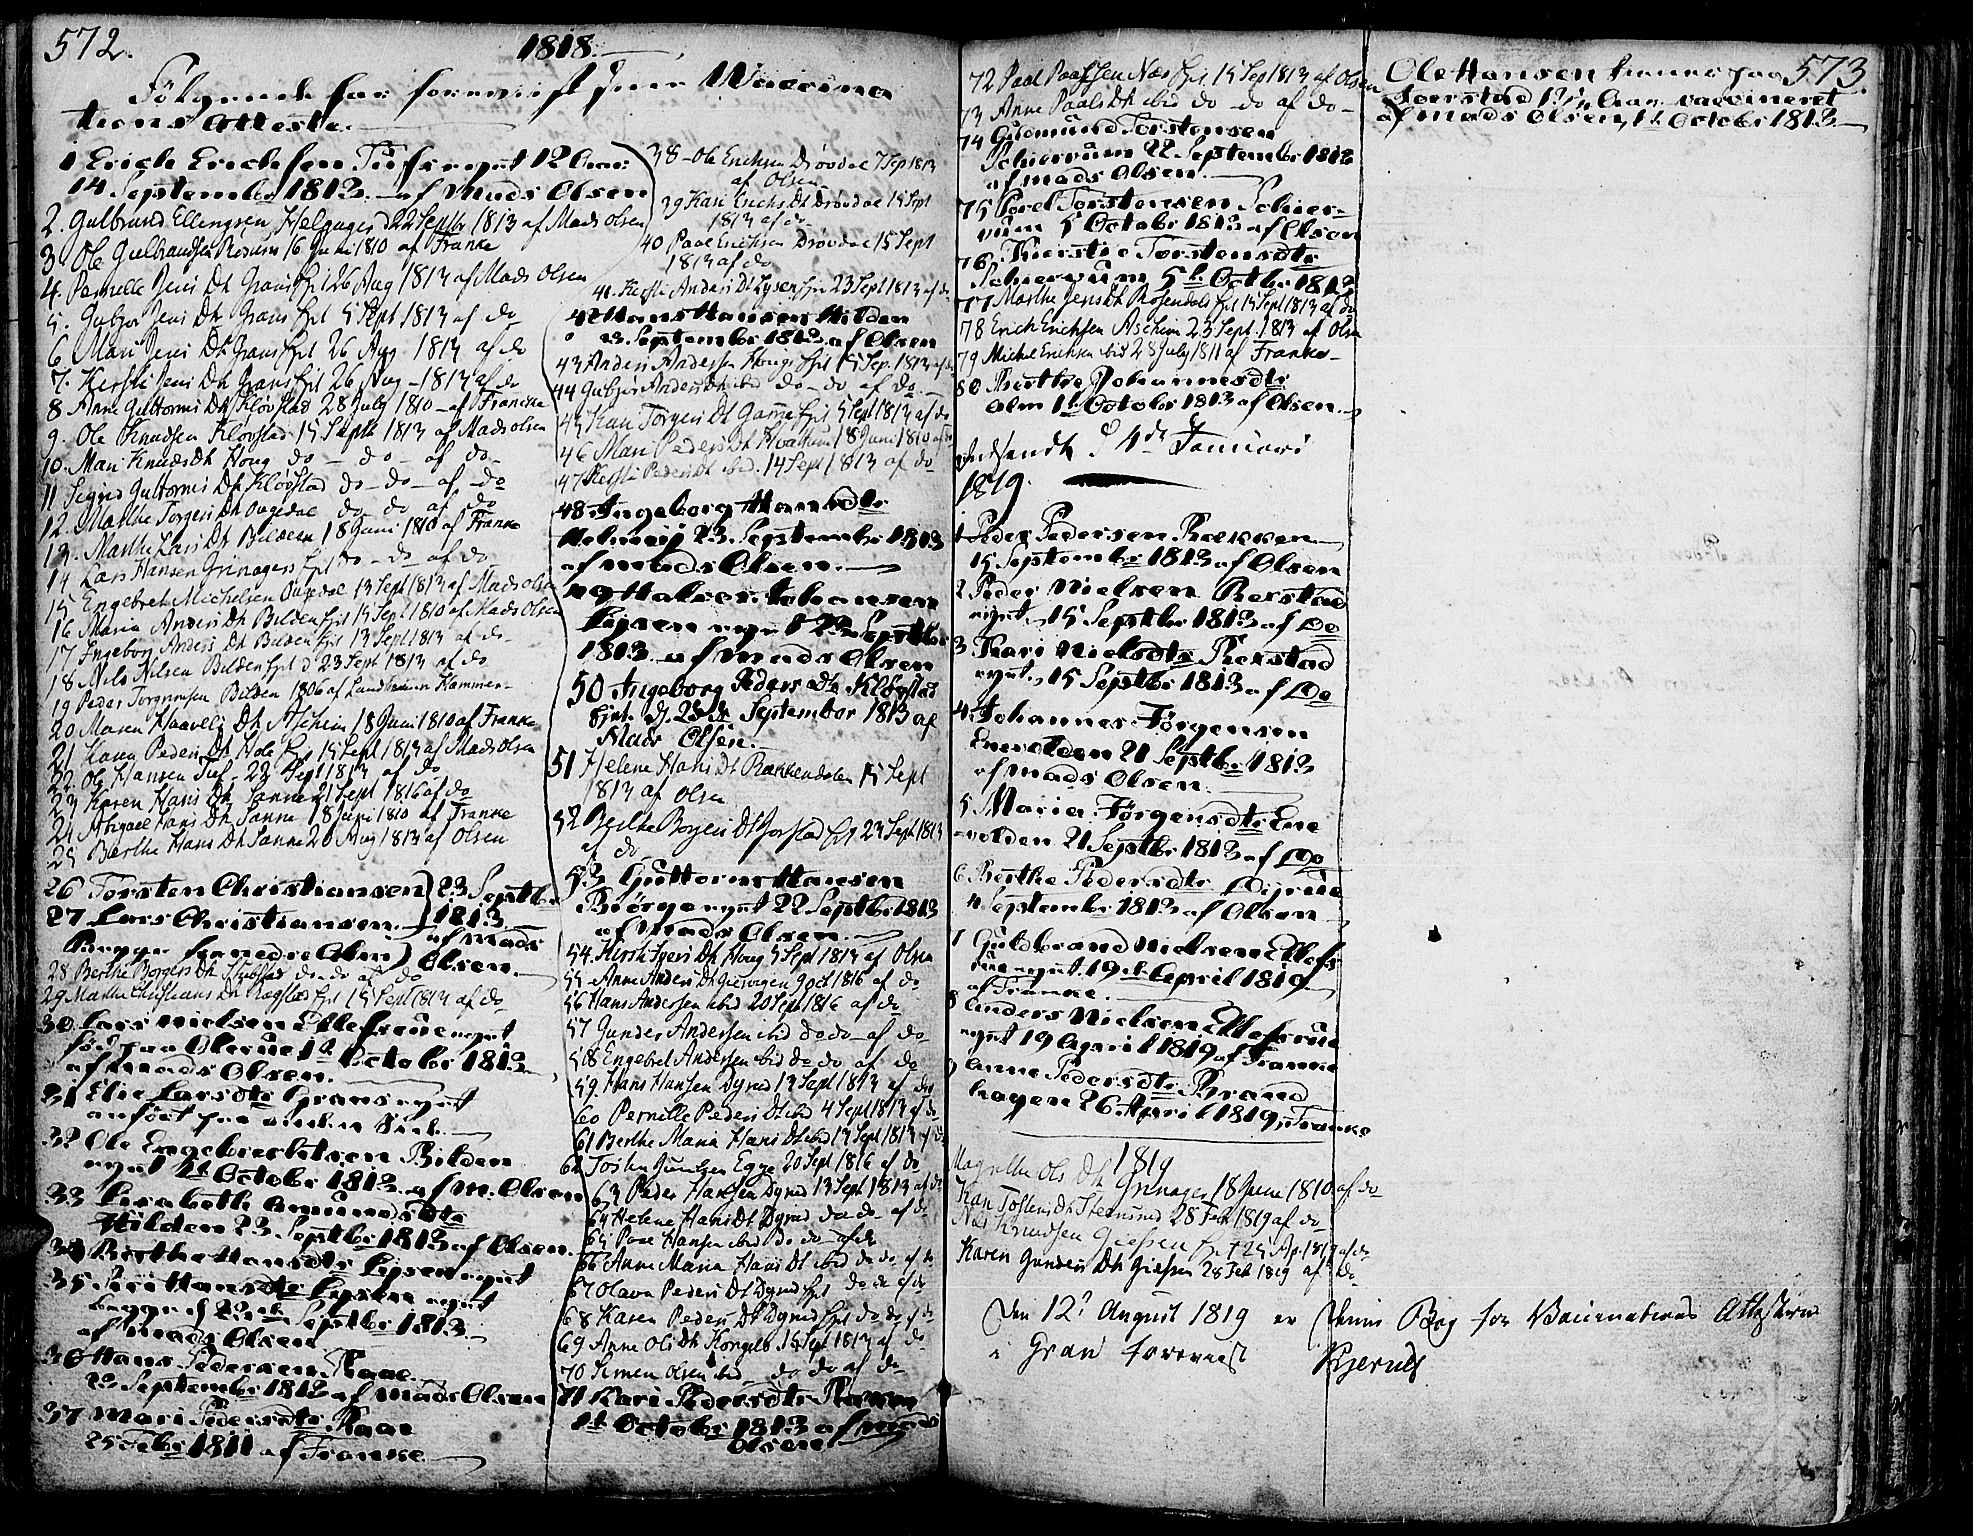 572.
1818
Følgende har foreviist Vaccina
tions Atteste.
1 Erich Erichsen Tufs eyet 12 Aar
14 September 1813 af Mads Olsen
2. Gulbrand Ellingsen Helgager d 22 Septbr 1813 af Mads Olsen
3. Ole Gulbrandsen Rosum 16 Juni 1810 af Franke
4. Pernelle Jens Dtr Grans Ejet 26 Aug 1813 af Mads Olsen
5. Gubjør Jens Dtr Grans Ejet 5 Sept 1813 af do
6 Mari Jens Dtr Grans Ejet 26 Aug 1813 af do
7. Kersti Jens Dtr Grans Ejet 26 Aug - 1813 af do
8 Anne Guttorms Dtr Kløvstad 28 July 1810 - af Francke
9. Ole Knudsen Kløvstad 15 Septb 1813 af Mads Olsen
10. Mari Knuds Dtr Houg do - do - af do -
11 Segred Guttorms Dtr Kløvstad do - do - af do
12. Marthe Torgers Dtr Ougedal do do af do
13. Marthe Lars Dtr Bilden 18 Juni 1810 af Franke
14 Lars Hansen Grinagers Ejet do - do af do
15 Engebret Michelsen Ougedal 13 Sept 1813 af Mads Olsen
16 Maria Anders Dtr Bilden Ejet 15 Sept 1810 af Mads Olsen
17 Ingeborg Anders Dtr Bilden Ejet 13 Sept 1813 af do -
18 Nils Nilsen Bilden Ejet d 23 Sept 1813 af do
19 Peder Torgersen Bilden 1806 af Landkirurg Hammer -
20 Maren Haavels Dtr Aschim 18 Juni 1810 af Franke
21 Karen Peders Dtr Hole Ejet 15 Sept 1813 af Mads Olsen
22. Ole Hansen Tuf - 22 Sept 1813 af do
23 Karen Hans Dtr Sanne 21 Sept 1816 af do
24 Abigael Hans Dtr Sanne 18 Juni 1810 af Franke
25 Berthe Hans Dtr Sanne 26 Aug 1813 af Olsen
26 Torsten Christiansen } 23 Septbr
27 Lars Christiansen } 1813
Begge fra nedre Alm } af Mads Olsen.
28 Berthe Borgers Dtr do - do af do
29 Marthe Christians Dtr Ragstad Ejet 15 Sept 1813 af do
30 Lars Nielsen Ellefsrue eyet
fød paa Olerue 1ste October 1813
af Mads Olsen.
31 Elie Larsdtr Grans eyet
anført paa anden Side
32 Ole Engebrechtsen Bilden
eyet 1st October 1813 af M. Olsen
33 Lisabeth Amunds dtr
Hilden 23 Septbr 1813 af Olsen
34 Berthe Hansdtr Lysen eyet
35 Siri Hansdtr Lysen eyet
begge d 22de Septbr 1813
af Mads Olsen
36 Hans Pedersen Raae
22 September 1813 af Mads Olsen
37 Mari Pedersdtr Raae
25 Febr 1811 af Franke
38 - Ole Erichsen Drøvdal 7 Sep 1813
af Olsen
39 Kari Erichs Dtr Drøvdal 15 Sept
1813 af do
40 Paal Erichsen Drøvdal 15 Sept
1813 af do
41. Kersti Anders Dtr Lysen Ejet 23 Sept 1813 af do
42 Hans Hansen Hilden
23 September 1813 af Olsen
43 Anders Andersen Hougs Ejet 15 Sep. 1813 af do
44 Gubjør Anders Dtr ibid do - do af do
45 Kari Torgers Dtr Game Ejet 5 Sept 1813 af do
46 Mari Peders Dtr Hvattum 18 Juni 1810 af do
47 Kersti Peders Dtr ibid. 14 Sept 1813 af do
48 Ingeborg Hansdtr
Helmeij 23 September 1813
af Mads Olsen.
49 Halvor Johansen
Lysen eyet 23 Septbr
1813 af Mads Olsen
50 Ingeborg Peders Dtr Kløvstad
Ejet. d. 23de September 1813 af
Mads Olsen.
51 Helene Hans Dtr Rækkendalen 15 Sept
1813 af Olsen
52 Berthe Borgers Dtr Jorstad Ejet 23 Sept 1813
af do
53 Guttorm Hansen
Børge eyet 22 Septbr 1813
af Mads Olsen.
54. Kersti Ivers Dtr Houg 5 Sept 1813 af Olsen
55 Anne Anders Dtr 9 oct 1816 af do
56 Hans Andersen ibid 20 Sept 1816 af do
57 Gunder Andersen ibid do do - af do
58 Engebret Andersen ibid do do af do
59. Hans Hansen Dyrud 13 Sept 1813 af do
60 Pernille Peders Dtr ibid 4 Sept 1813 af do
61 Berthe Maria Hans Dtr ibid 13 Sept 1813 af do
62 Tosten Egge 20 Sept 1816 af do
63 Peder Hansen Dyrud 13 Sept 1813 af do
64 Helene Hans Dtr Dyrud do do - af do
65 Paal Hansen ibid do do - af do
66 Anne Maria Hans Dtr ibid do do af do
67 Olava Peders Dtr Dyrud Ejet do do af do
68 Karen Peders Dtr Dyrud Ejet do do af do
69 Anne Ols Dtr Kongels 15 Sept 1813 af do -
70 Simen Olsen ibid - do do af do -
71 Kari Pedersdtr Ramen
1st October 1813 af Mads
Olsen
72 Paal Paalsen Næs Ejet 15 Sep 1813 af Olsen
73 Anne Paals Dtr ibid do - do af do -
74 Gudmund Torstensen
Schierrum 22 September 1813
af Mads Olsen.
75 Povel Torstensen Schier-
rum 5 October 1813 af Olsen
76 Kierstie Torstensdtr
Schierrum 5te Octbr 1813
77 Marthe Jens Dtr Rosendals Ejet 15 Sept 1813 af do
78 Erich Erichsen Aschim 23 Sept. 1813 af Olsen
79 Michel Erichsen ibid 28 July 1811 af Franke -
80 Berthe Johannesdtr
Alm 1st October 1813 af Olsen
Indsendt d 4de Januari
1819.
1 Peder Pedersen Rækken
15 September 1813 af Olsen
2 Peder Nielsen Rækstad
eyet, 15 Septbr 1813 af Do
3 Kari Nielsdtr Rækstad
eyet, 15 Septbr 1813 af Do
4 Johannes Jørgensen
Enevolden 21 Septbr 1813
af Mads Olsen.
5 Maria Jørgensdtr Ene
volden 21 Septbr 1813 af Do
6 Berthe Pedersdtr Dyrue
4 September 1813 af Olsen
7 Guldbrand Nielsen Ellefs
rue eyet. 19de April 1819
af Franke.
8 Anders Nielsen Ellefsrue
eyet 19 April 1819 af Franke
9 Anne Pedersdtr Brand
hagen 26 April 1819, Franke
1819
Magnille Ols Dtr Grinager 18 Juni 1810 af do
Kari Tostens Dtr Stensrud 28 Feb 1819 af do
Nils Knudsen Ejet 25 Ap. 1819 af do
Karen Gunders Dtr 28 Feb 1819 af Do
Den 12te August 1819 er denne Bog for Vaccinations Attesterne
i Gran foreviist Bjerud
573.
Ole Hansen tiener paa
Joerstad 17 1/2 Aar vaccineret
af Mads Olsen, 1st October 1813